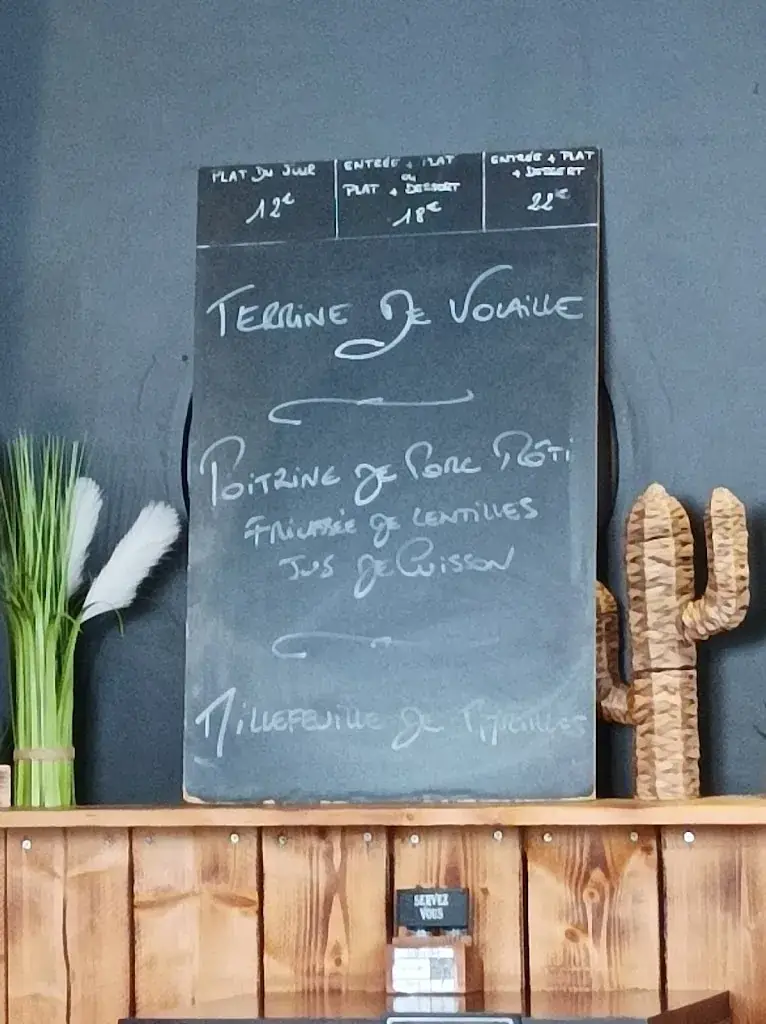 PLAT DU JOUR
12€
ENTRÉE + PLAT
OU
PLAT + DESSERT
18€
ENTRÉE + PLAT
+ DESSERT
22€
TERRINE DE VOLAILLE
POITRINE DE PORC RÔTI
FRICASSÉE DE LENTILLES
JUS DE CUISSON
MILLEFEUILLE DE
SERVEZ
VOUS